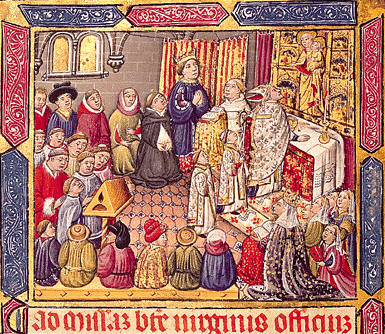 Ad missaz bte virginis officiuz